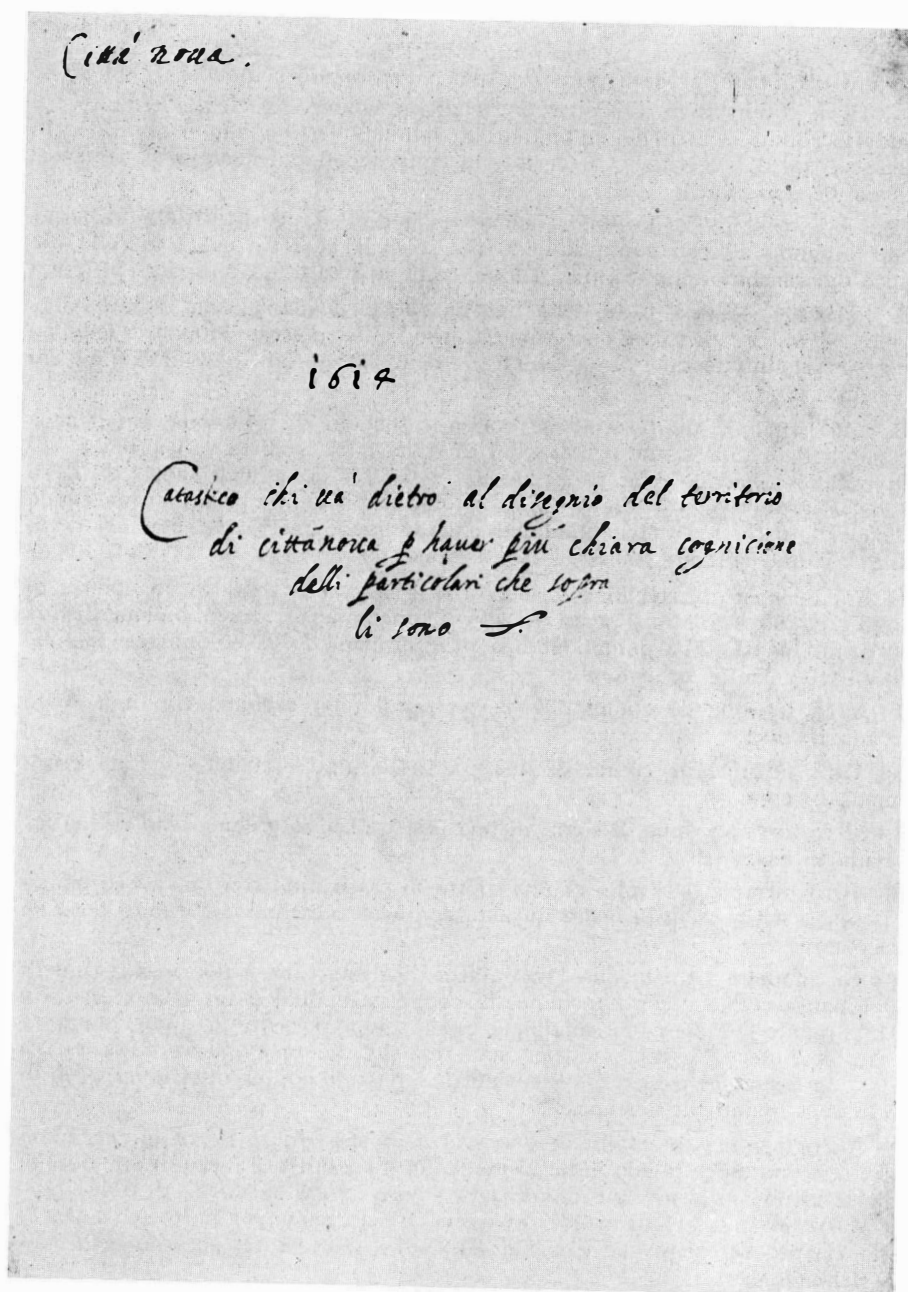 Città noua.
1614
Catastico chi uà dietro al disegnio del territorio
di cittānoua p̱ hauer più chiara cognicione
delli particolari che sopra
li sono